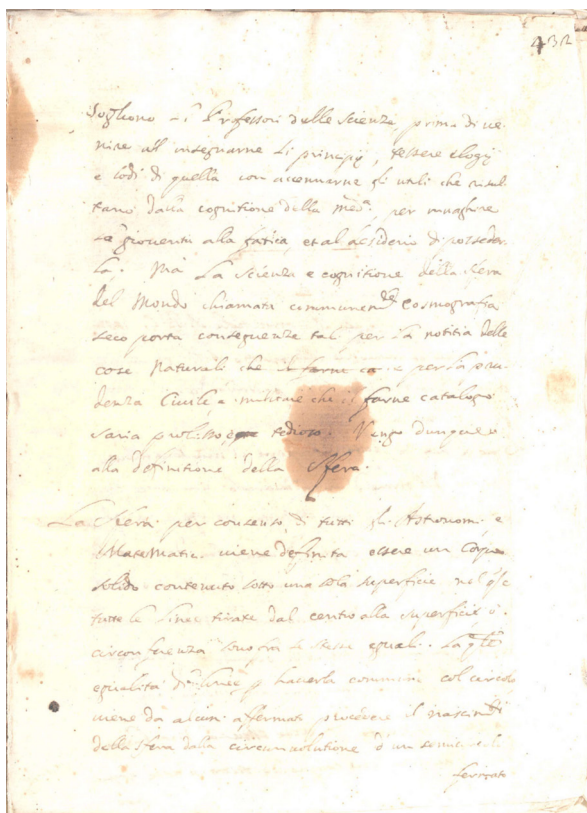 432
Sogliono i Professori delle scienze prima di ue-
nire all'insegnarne li principij, tessere elogij
e lodi di quella con accennarne gli utili che risul-
tano dalla cognitione della med.ª per inuaghire
la giouentù alla fatica, et al desiderio di posseder-
la. Mà La scienza e cognitione della sfera
del Mondo chiamata communem.te Cosmografia
seco porta conseguenze tali per la notitia delle
cose Naturali che il farne ca e per la pru-
denza Ciuile e che il farne catalogo
saria prolisso e tedioso. Vengo dunque
alla definitione della Sfera.
La Sfera per consenso di tutti gli Astronomi e
Matematici uiene definita essere un Corpo
solido contenuto sotto una sola superficie nel q.le
tutte le linee tirate dal centro alla superficie ò
circonferenza sono frà di stesse eguali. La q.le
egualità di linee p hauerla commune col circolo
uiene da alcuni affermati procedere il nascim.to
della sfera dalla circonuolutione d'un semicircolo
ferrato